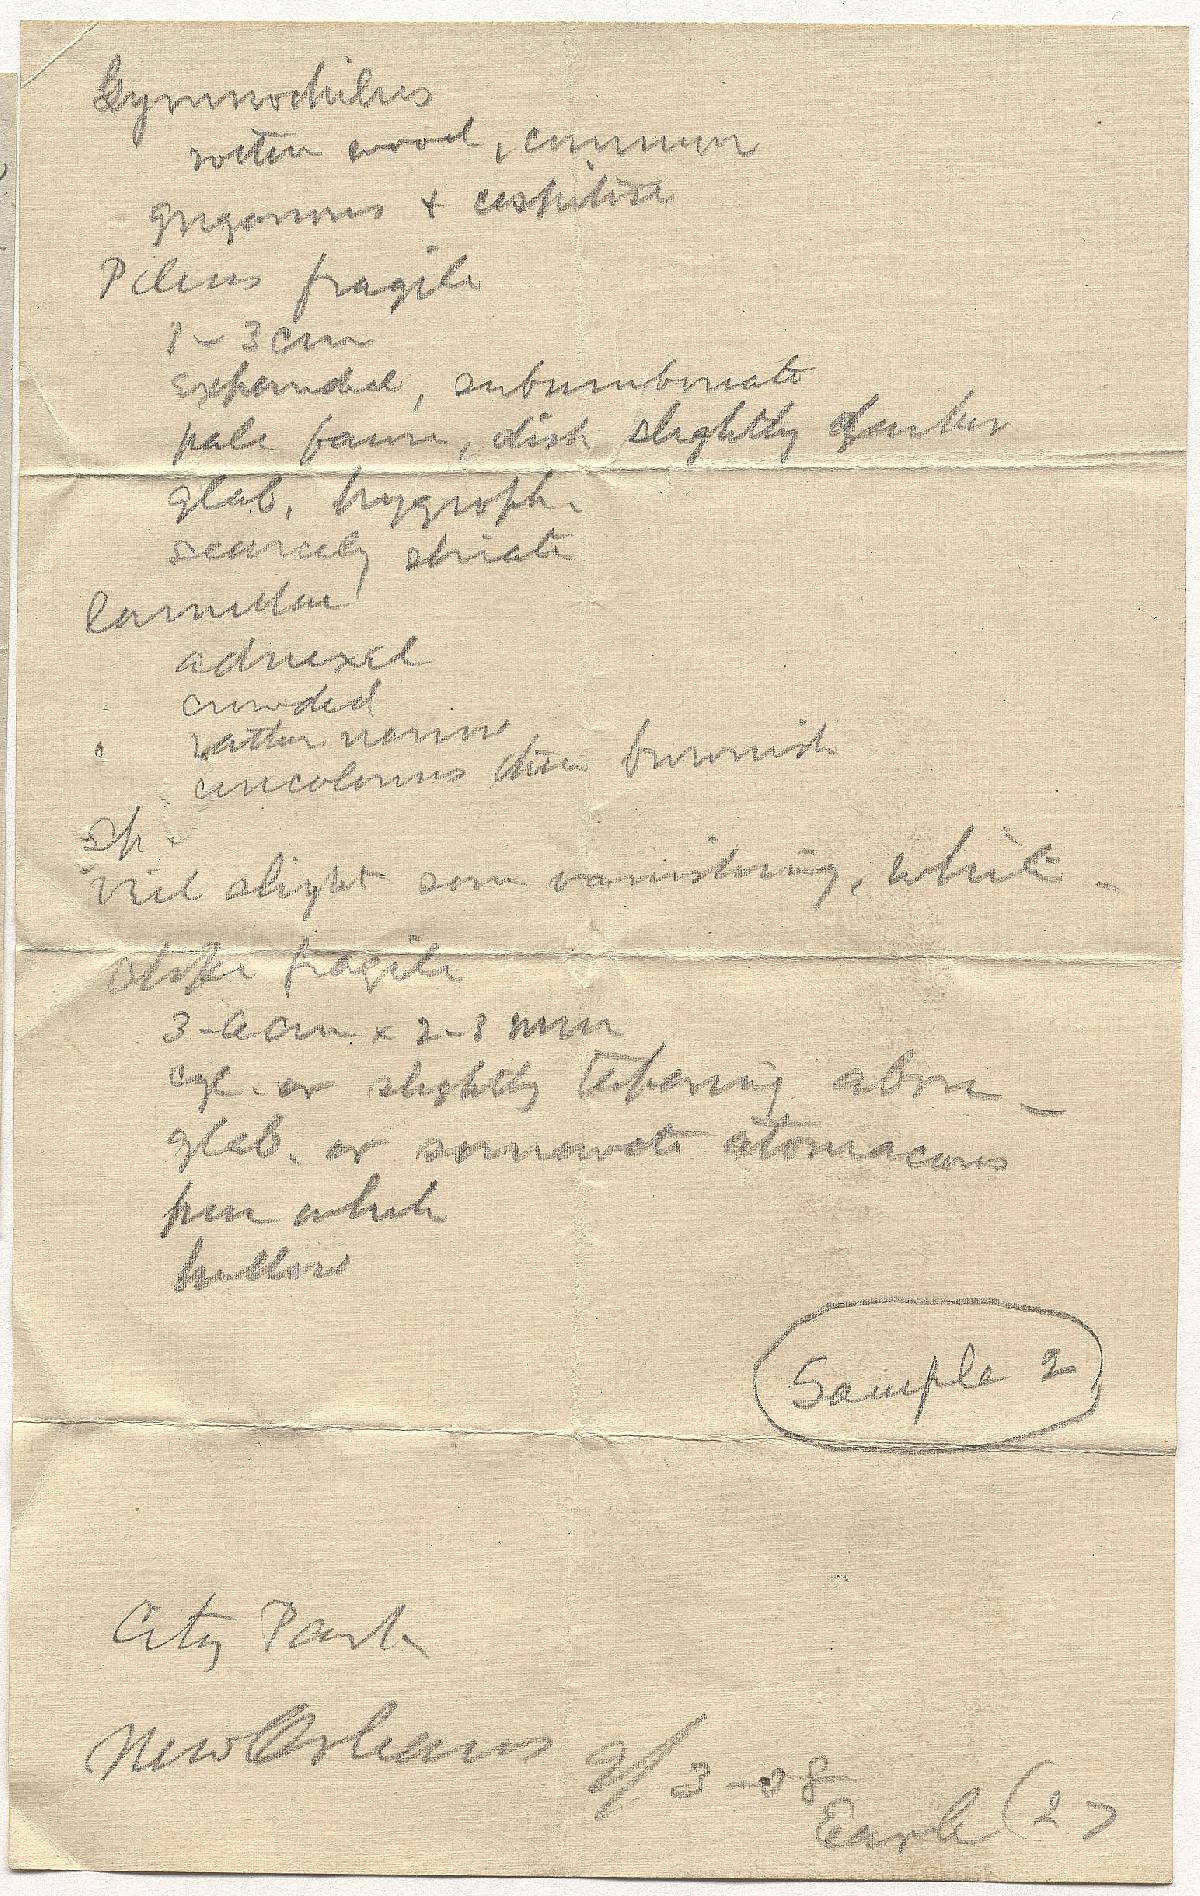 Gymnochilus
rotten wood, common
gregarious & cespitose
Pileus fragile
1-3 cm
expanded, subumbonate
pale fawn, disk slightly darker
glab, hygroph.
scarcely striate
Lamellae
adnexed
crowded
rather narrow
concolorous then brownish
Sp.
Veil slight soon vanishing, white -
Stipe fragile
3-6 cm x 2-3 mm
cyl. or slightly tapering above -
glab. or somewhat atomaceous
pure white
hollow
Sample 2
City Park
New Orleans 9/3-08
Earle (2)